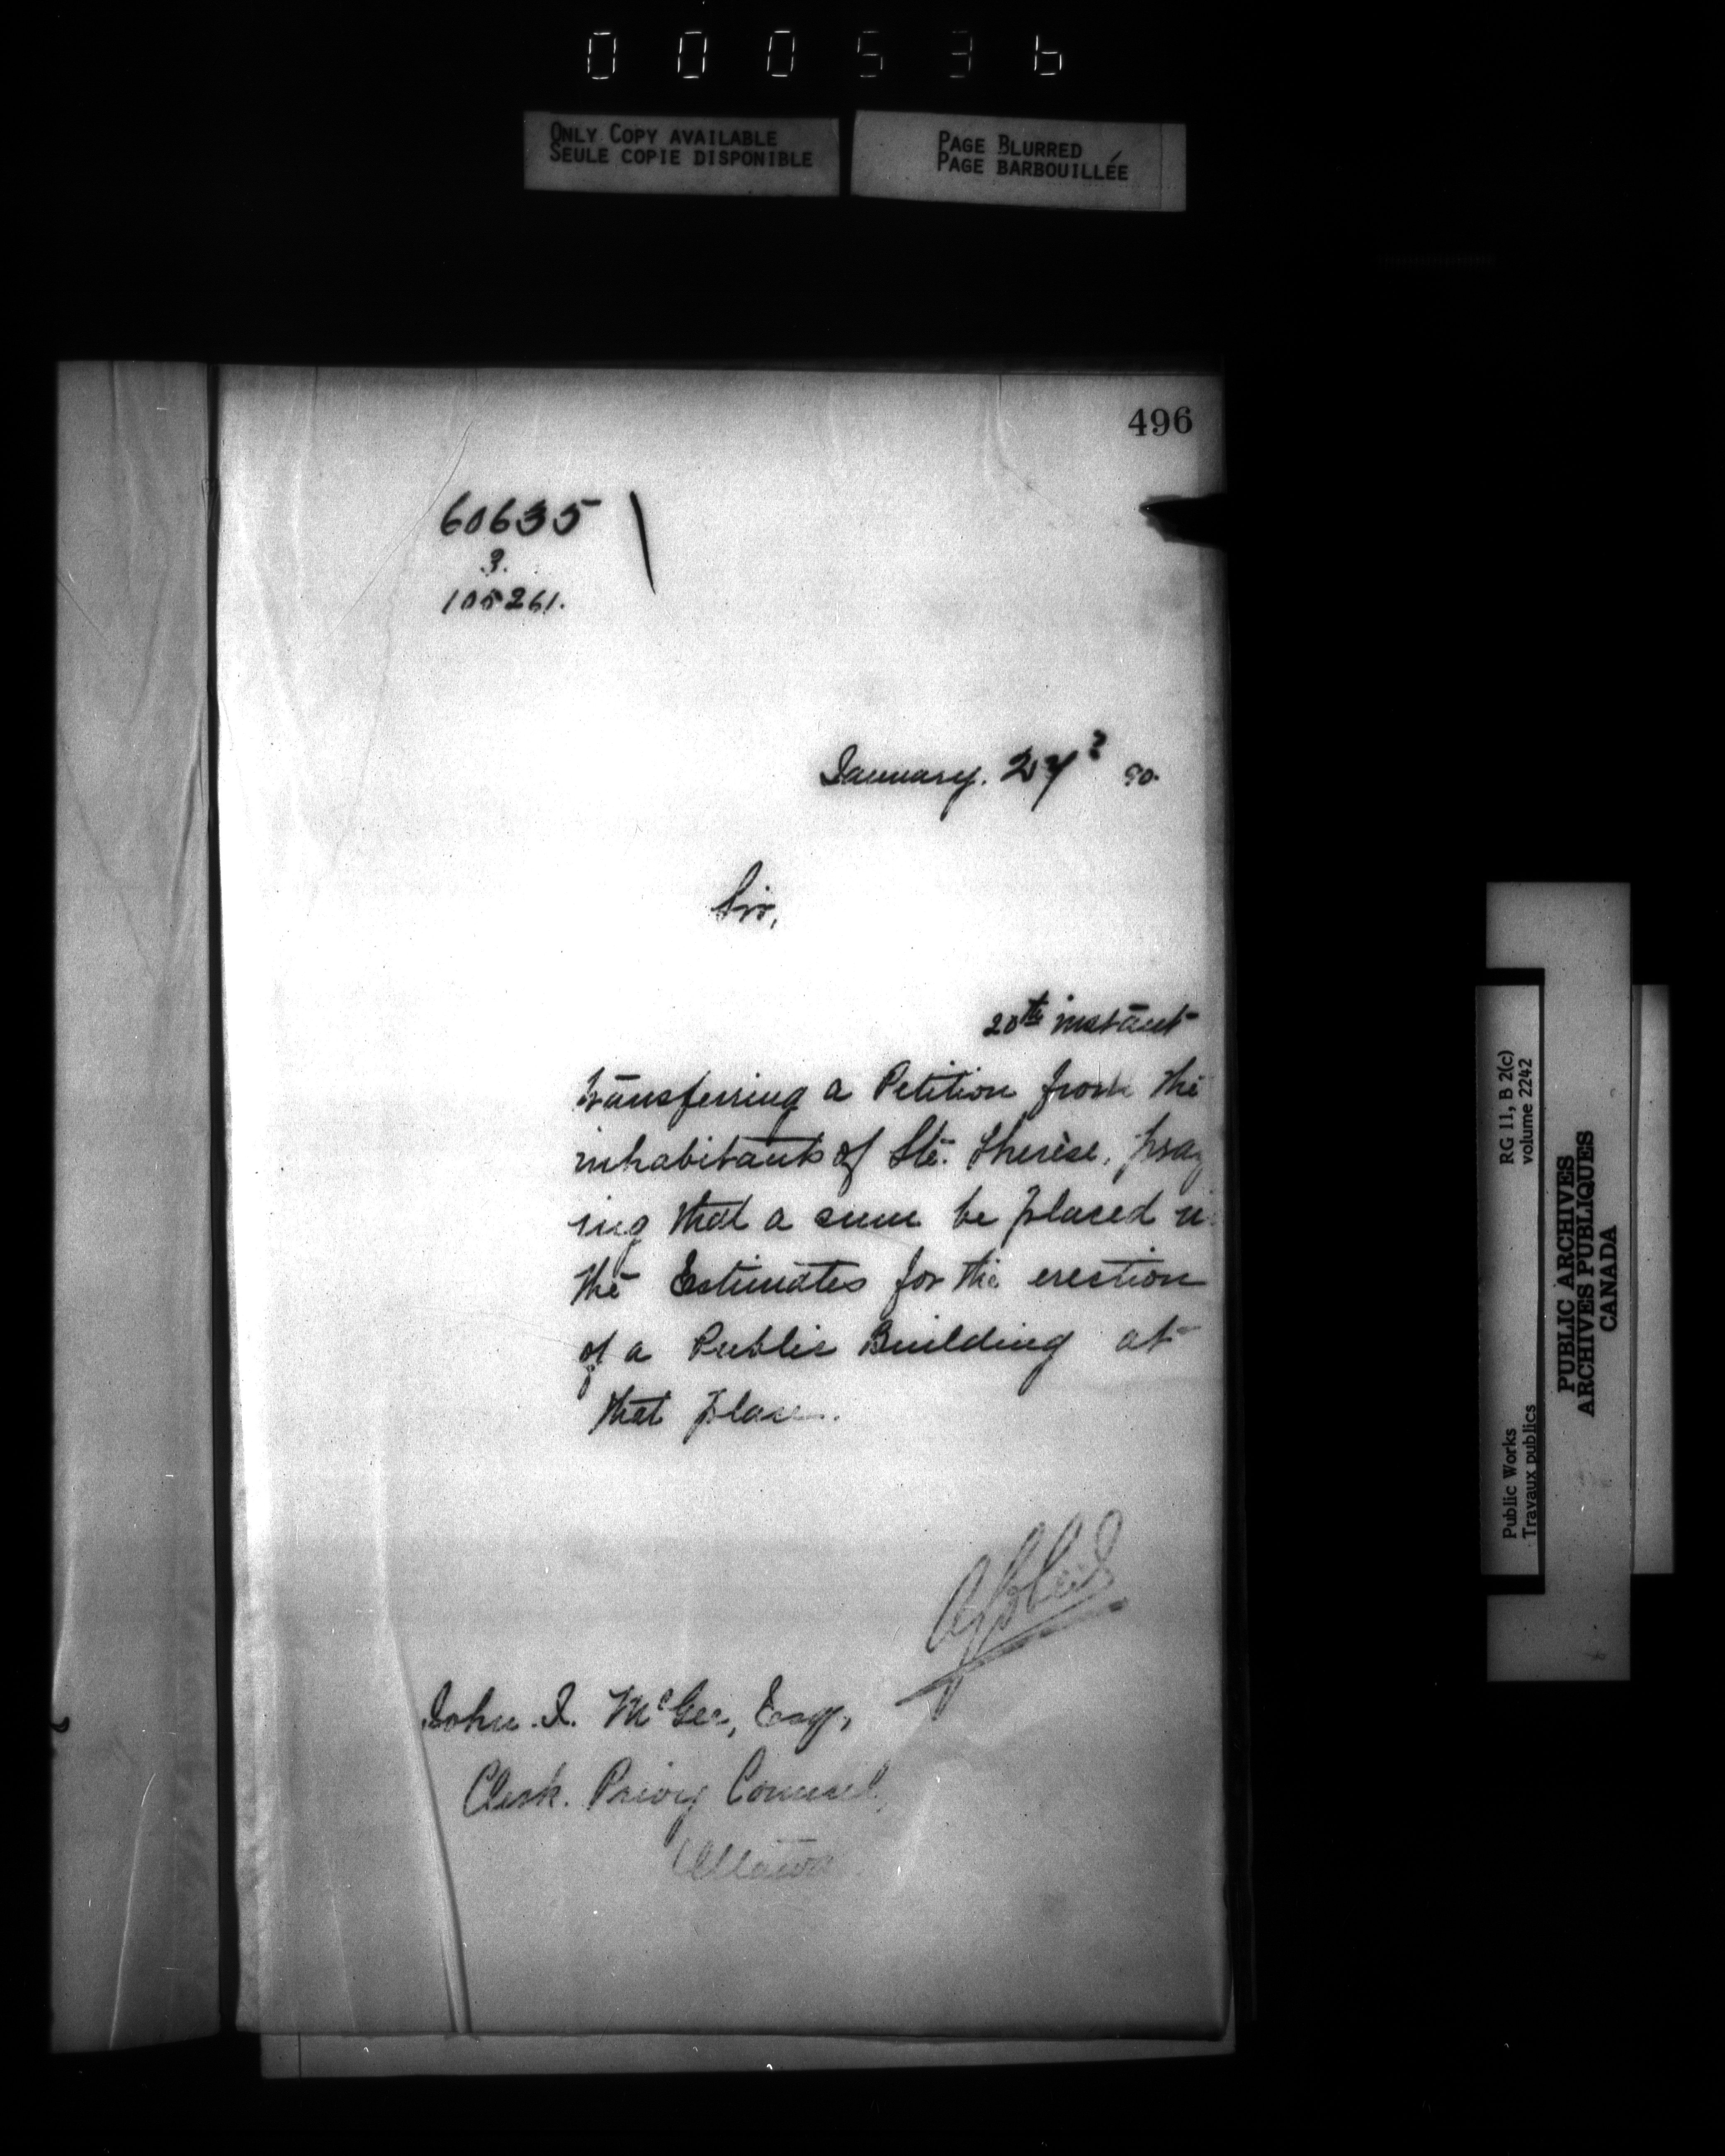 000536
ONLY COPY AVAILABLE
SEULE COPIE DISPONIBLE
PAGE BLURRED
PAGE BARBOUILLÉE
496
60635
3.
105261.
January. 27 90.
Sir,
20th instant
transferring a Petition from the
inhabitants of Ste. Therèse, pray
ing that a sum be placed in
the Estimates for the erection
of a Public Building at
that place.
John. J. McGee, Esqr,
Clerk. Privy Council,
Ottawa
RG 11, B 2(c)
volume 2242
Public Works
Travaux publics
PUBLIC ARCHIVES
ARCHIVES PUBLIQUES
CANADA